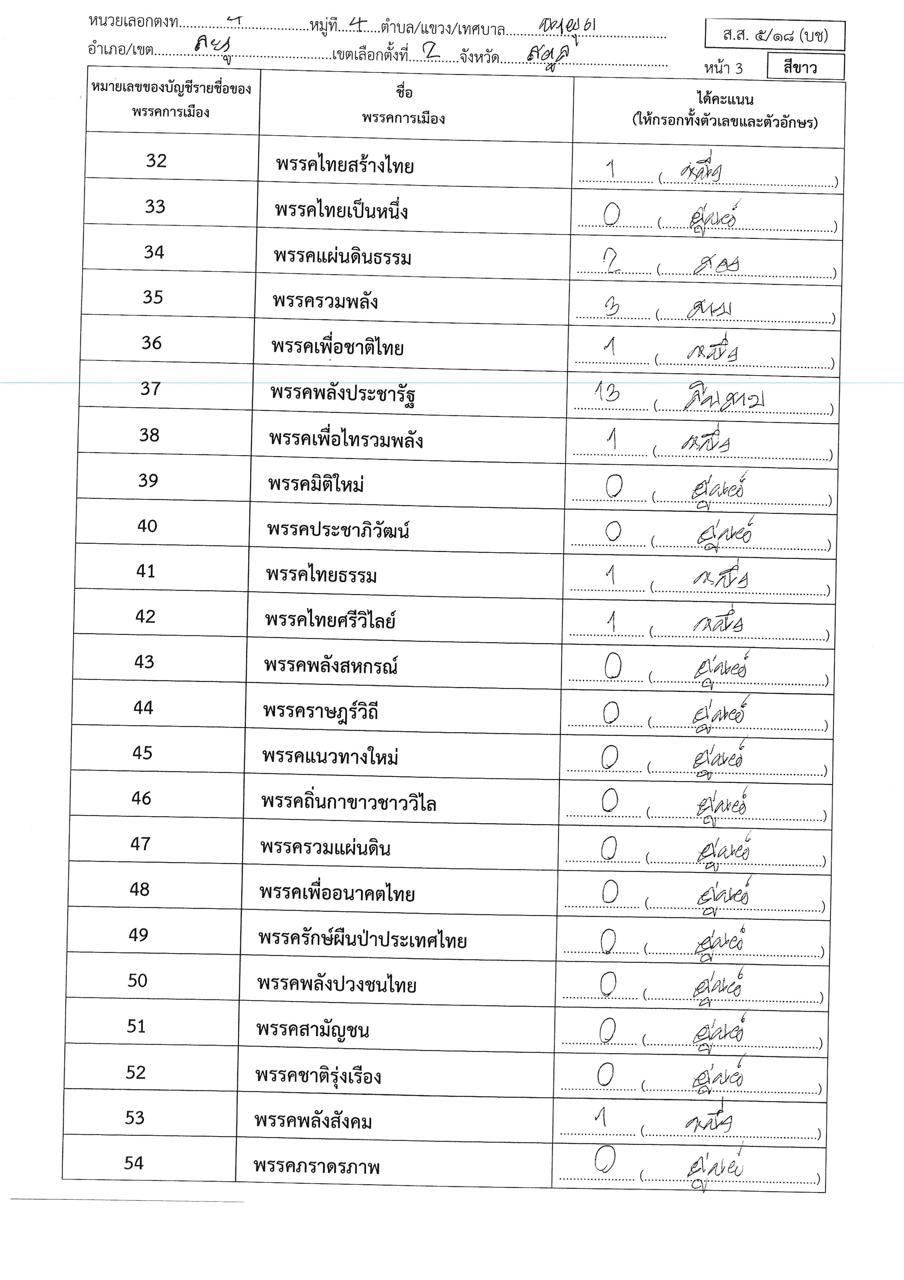 หน่วยเลือกตั้งที่ 4 หมู่ที่ 4 ตำบล/แขวง/เทศบาล
อำเภอ/เขต ละงู เขตเลือกตั้งที่ 2 จังหวัด สตูล
ส.ส. ๕/๑๘ (บช)
หน้า 3 สีขาว
หมายเลขของบัญชีรายชื่อของพรรคการเมือง ชื่อพรรคการเมือง ได้คะแนน (ให้กรอกทั้งตัวเลขและตัวอักษร)
32 พรรคไทยสร้างไทย 1 (หนึ่ง)
33 พรรคไทยเป็นหนึ่ง 0 (ศูนย์)
34 พรรคแผ่นดินธรรม 2 (สอง)
35 พรรครวมพลัง 3 (สาม)
36 พรรคเพื่อชาติไทย 1 (หนึ่ง)
37 พรรคพลังประชารัฐ 13 (สิบสาม)
38 พรรคเพื่อไทรวมพลัง 1 (หนึ่ง)
39 พรรคมิติใหม่ 0 (ศูนย์)
40 พรรคประชาภิวัฒน์ 0 (ศูนย์)
41 พรรคไทยธรรม 1 (หนึ่ง)
42 พรรคไทยศรีวิไลย์ 1 (หนึ่ง)
43 พรรคพลังสหกรณ์ 0 (ศูนย์)
44 พรรคราษฎร์วิถี 0 (ศูนย์)
45 พรรคแนวทางใหม่ 0 (ศูนย์)
46 พรรคถิ่นกาขาวชาววิไล 0 (ศูนย์)
47 พรรครวมแผ่นดิน 0 (ศูนย์)
48 พรรคเพื่ออนาคตไทย 0 (ศูนย์)
49 พรรครักษ์ผืนป่าประเทศไทย 0 (ศูนย์)
50 พรรคพลังปวงชนไทย 0 (ศูนย์)
51 พรรคสามัญชน 0 (ศูนย์)
52 พรรคชาติรุ่งเรือง 0 (ศูนย์)
53 พรรคพลังสังคม 1 (หนึ่ง)
54 พรรคภราดรภาพ 0 (ศูนย์)